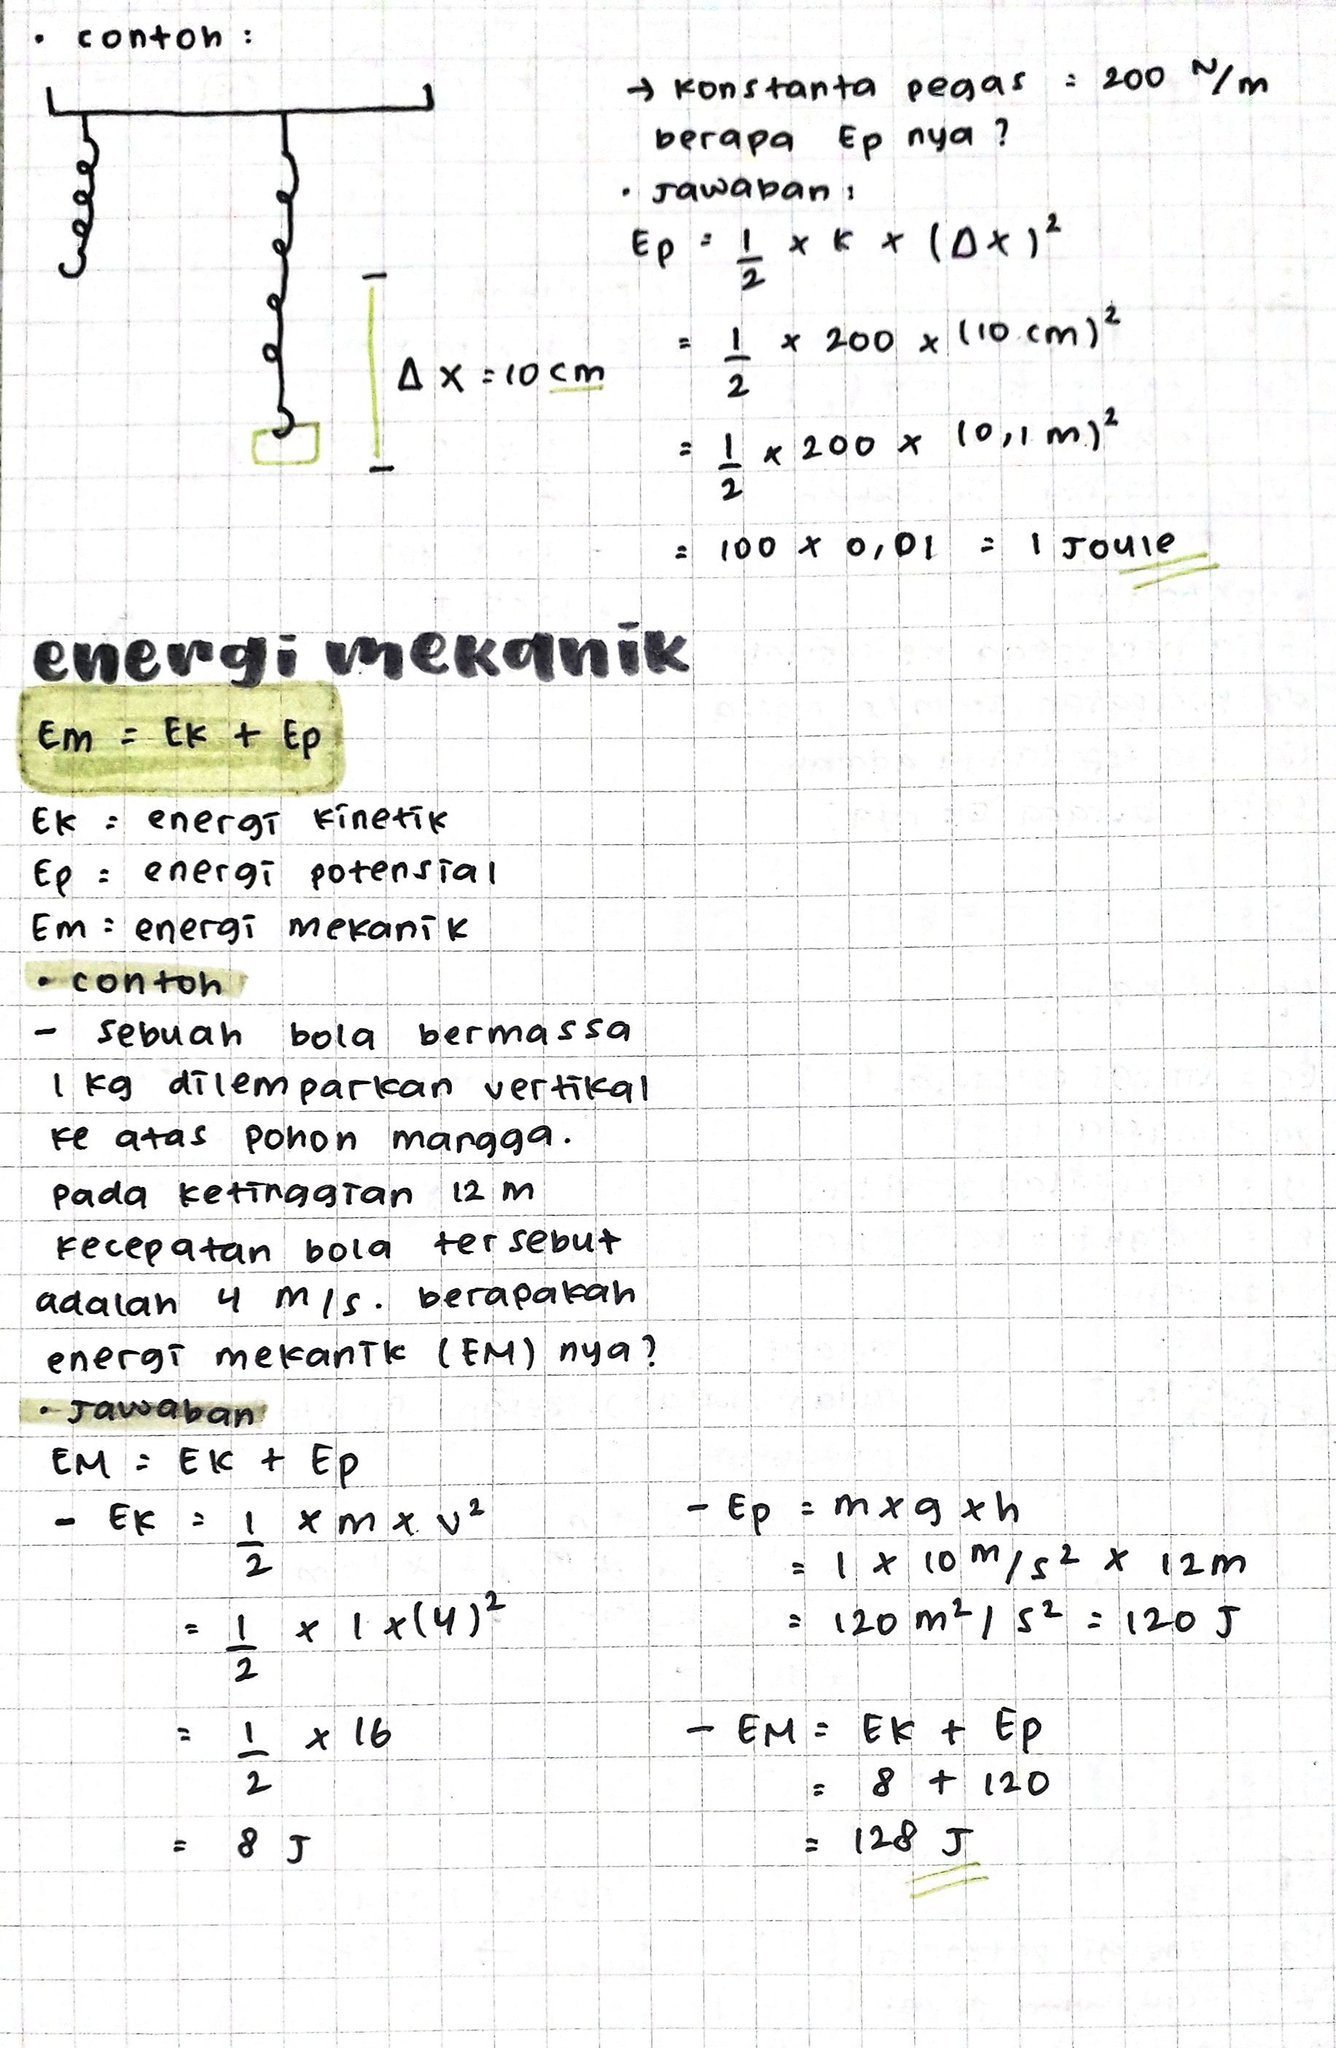 • contoh :
→ konstanta pegas = 200 N/m
berapa Ep nya?
• Jawaban :
Ep = 1/2 x k x (Δx)²
= 1/2 x 200 x (10 cm)²
Δx = 10 cm
= 1/2 x 200 x (0,1 m)²
= 100 x 0,01 = 1 Joule
energi mekanik
Em = Ek + Ep
Ek = energi kinetik
Ep = energi potensial
Em = energi mekanik
• contoh
- sebuah bola bermassa
1 kg dilemparkan vertikal
ke atas pohon mangga.
pada ketinggian 12 m
kecepatan bola tersebut
adalah 4 m/s. berapakah
energi mekanik (EM) nya?
• Jawaban
EM = Ek + Ep
- Ek = 1/2 x m x v²
= 1/2 x 1 x (4)²
= 1/2 x 16
= 8 J
- Ep = m x g x h
= 1 x 10 m/s² x 12 m
= 120 m²/s² = 120 J
- EM = Ek + Ep
= 8 + 120
= 128 J